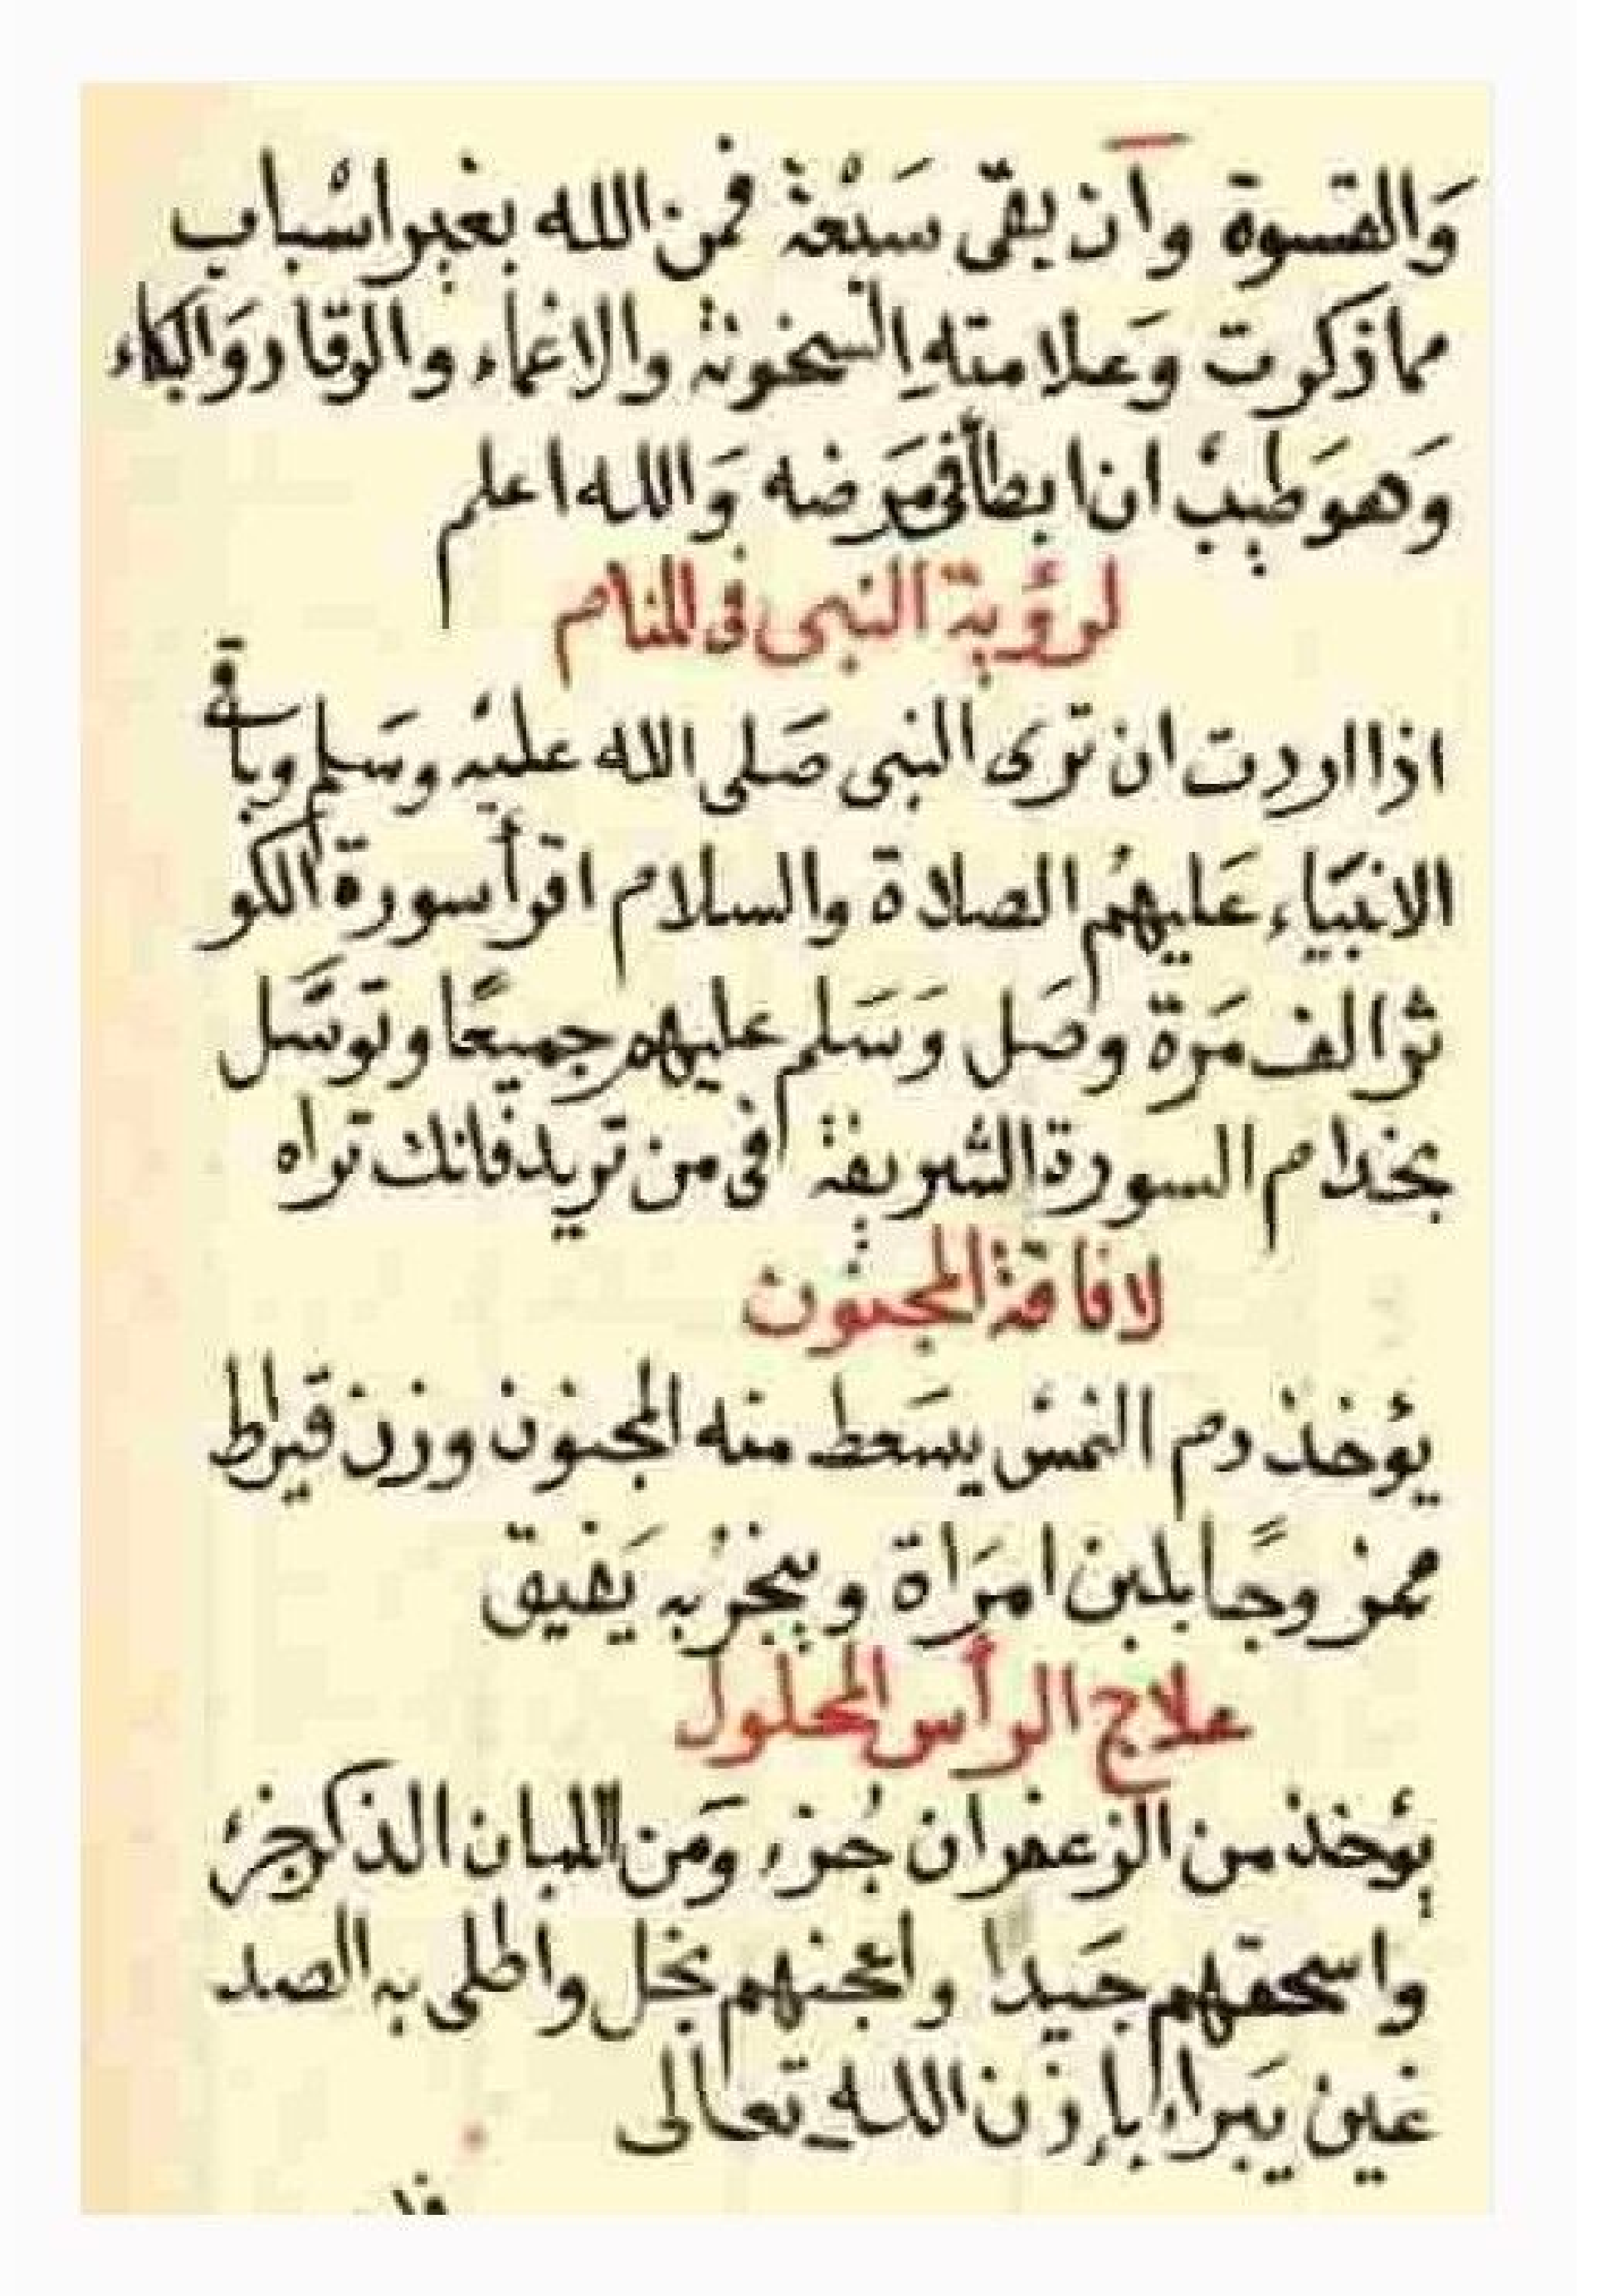 وَالقسوة وآن بقى سَبْعَة فمن الله بغير اسْباب
مما ذكرت وَعلامته السخونة والاغماء والوقار وَالبكاء
وَهوَ طيب ان ابطأ فى مَرَضه وَالله اعلم
لرؤية النبى فى المنام
اذا اردت ان ترى النبى صَلى الله عليْه وسَلم وباقى
الانبيَاء عَليهمُ الصلاة والسلام اقرأ سورة الكو
ثر الف مَرة وصَل وَسَلم عليهم جميعًا وتوسَّل
بخدام السورة الشريفة فى من تريد فانك تراه
لافاقة المجنون
يؤخذ دم النمسْ يسَعط منه المجنون وزن قيراط
ممزوجًا بلبن امرَاة ويبخرُ به يَفيق
علاج الرأس المحلول
يؤخذ من الزعفران جُزء وَمن اللبان الذكر جزء
واسحقهم جَيدا واعجنهم بخل واطلى به الصد
غين يَبرا بإذن الله تعالى